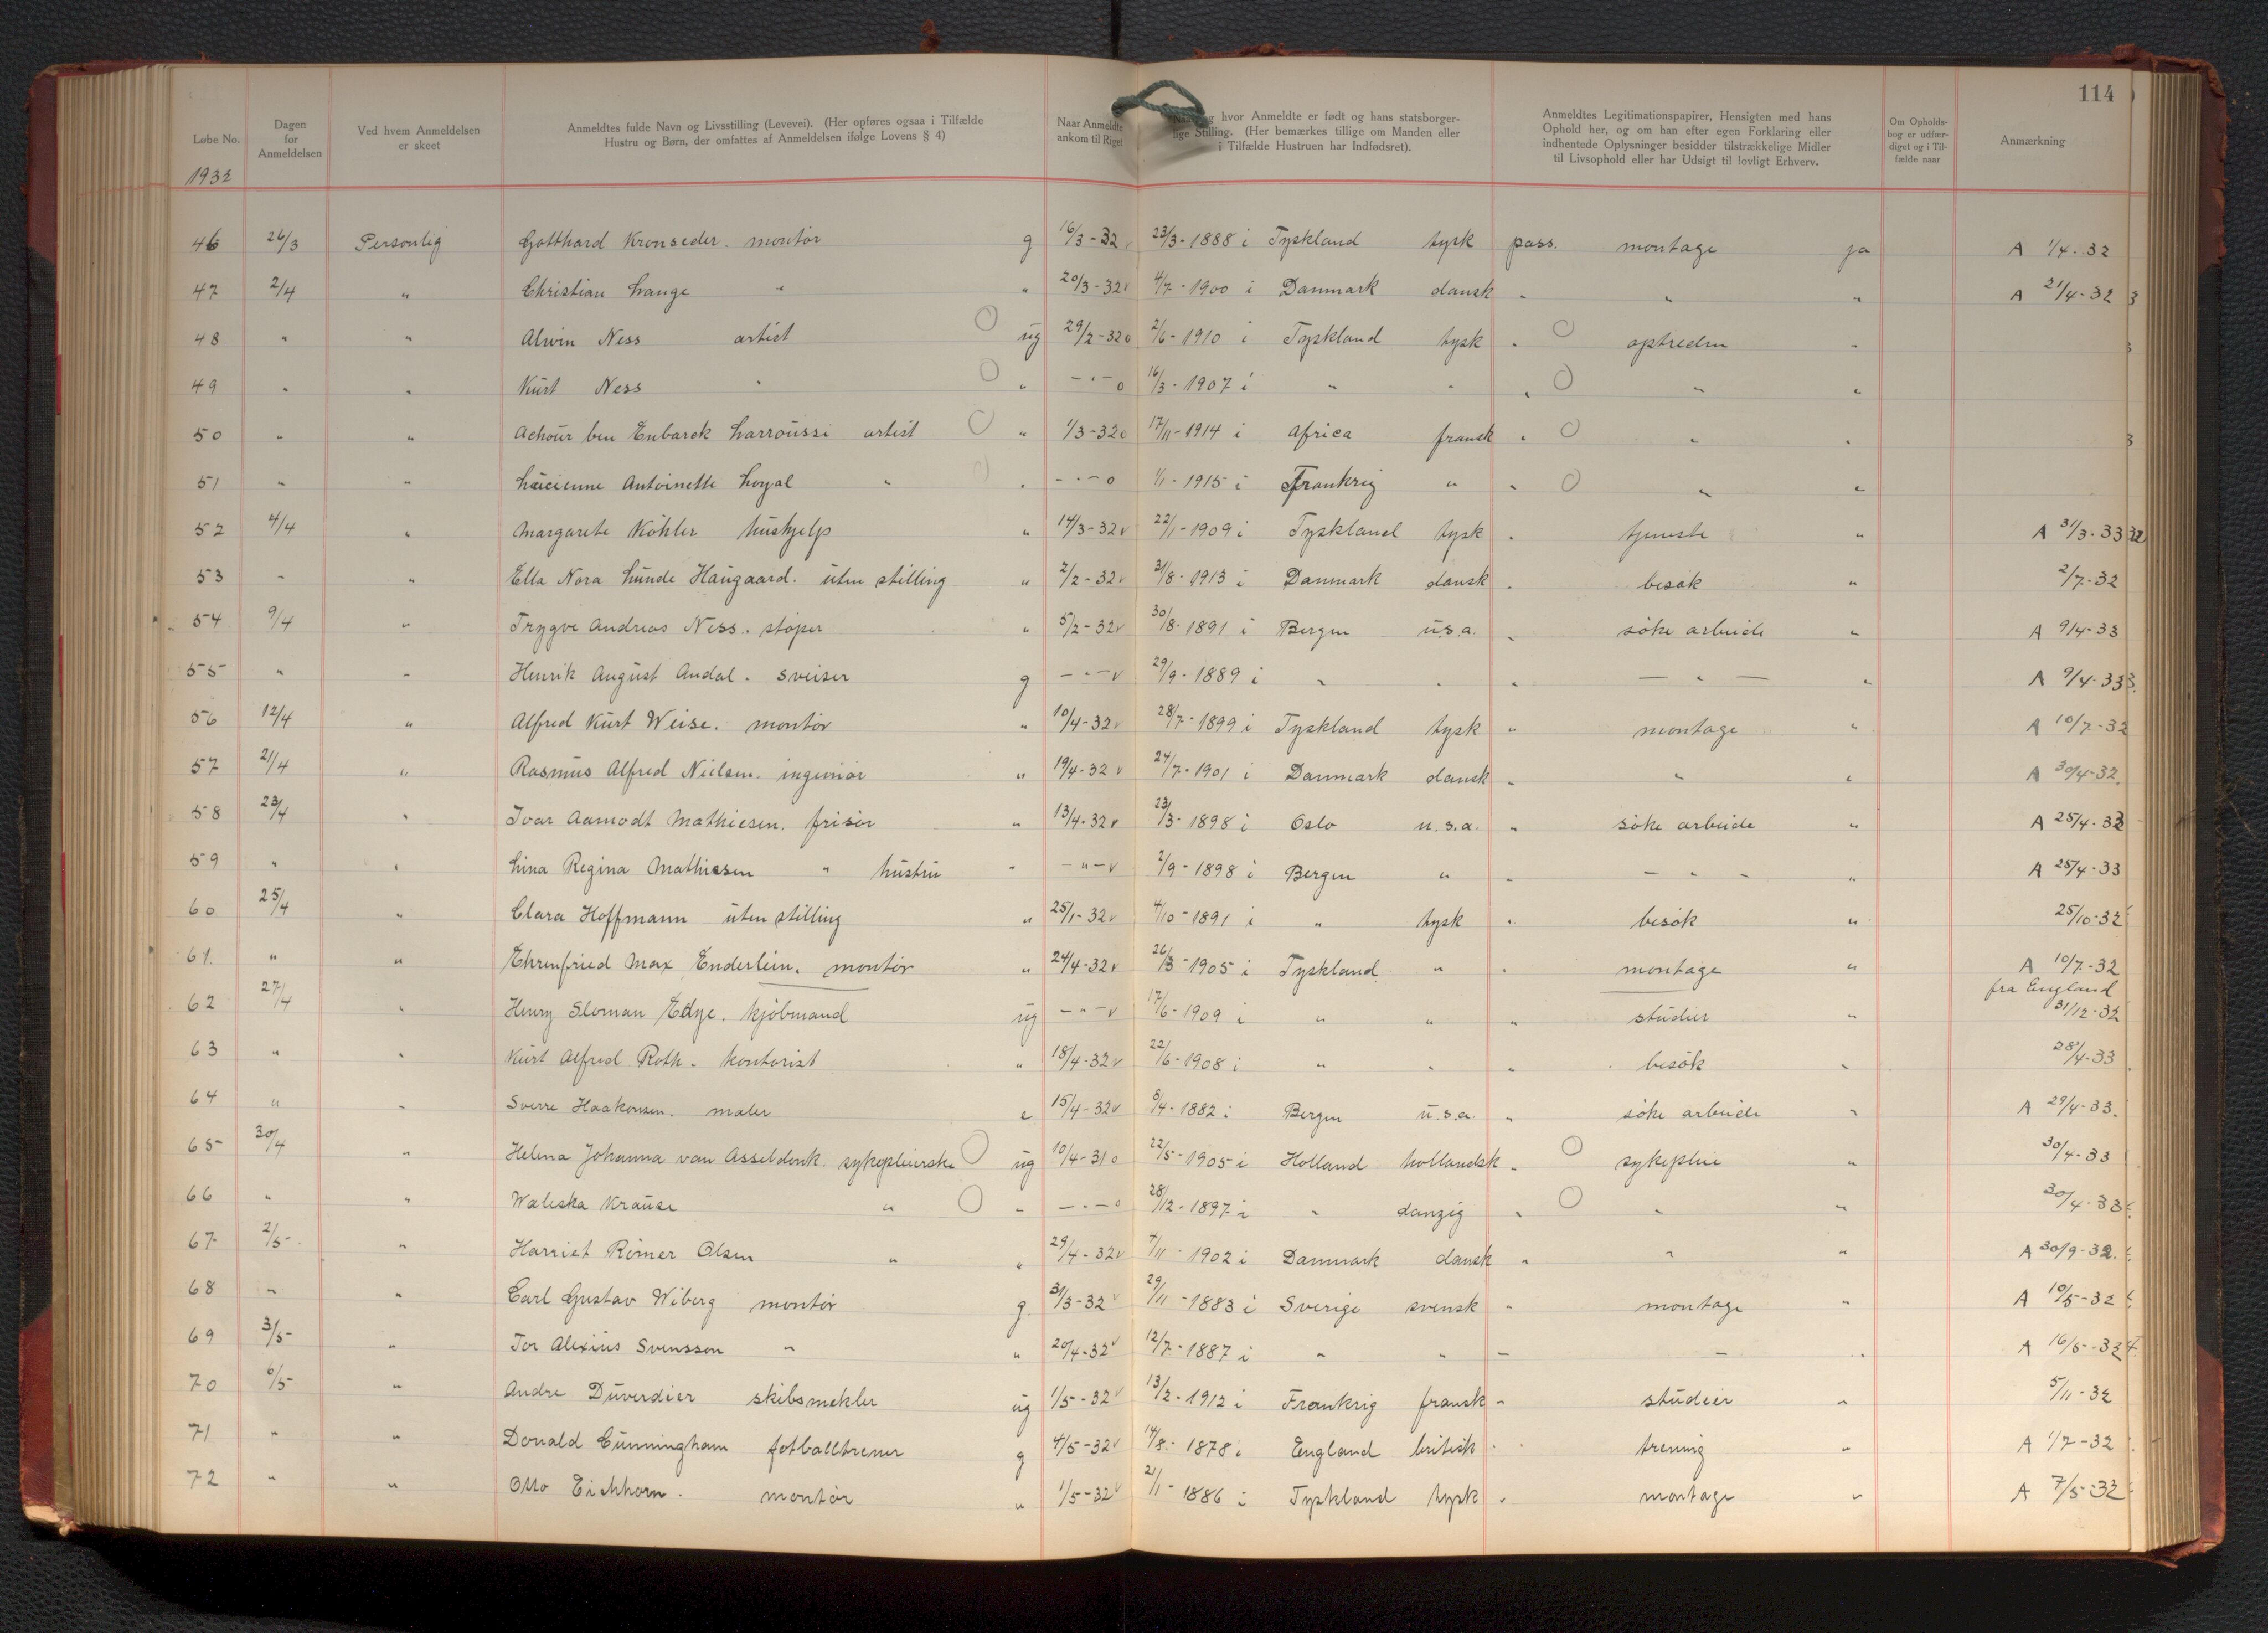 114
Løbe No.
Dagen for Anmeldelsen
Ved hvem Anmeldelsen er skeet
Anmeldtes fulde Navn og Livsstilling (Levevei). (Her opføres ogsaa i Tilfælde Hustru og Børn, der omfattes af Anmeldelsen ifølge Lovens § 4)
Naar Anmeldte ankom til Riget
hvor Anmeldte er født og hans statsborgerlige Stilling. (Her bemærkes tillige om Manden eller i Tilfælde Hustruen har Indfødsret).
Anmeldtes Legitimationspapirer, Hensigten med hans Ophold her, og om han efter egen Forklaring eller indhentede Oplysninger besidder tilstrækkelige Midler til Livsophold eller har Udsigt til lovligt Erhverv.
Om Opholdsbog er udfærdiget og i Tilfælde naar
Anmærkning
1932
46 26/3 Personlig Gotthard Kronseder. montør g 16/3-32 v 23/3-1888 i Tyskland tysk pass. montage ja A 1/4-32
47 2/4 " Christian Lange " " 20/3-32 v 4/7-1900 i Danmark dansk " " " A 21/4-32
48 " " Alwin Ness artist ug 29/2-32 o 2/6-1910 i Tyskland tysk " optreden "
49 " " Kurt Ness " " -"- o 16/3-1907 i " " " " "
50 " " Achour ben Enbarek Larroussi artist " 1/3-32 o 17/11-1914 i Africa fransk " " "
51 " " Lucienne Antoinette Loyal " " -"- o 1/1-1915 i Frankrig " " " "
52 4/4 " Margarete Köhler hushjelp " 14/3-32 v 22/1-1909 i Tyskland tysk " tjeneste " A 31/3-33
53 " " Ella Nora Lunde Haugaard. uten stilling " 2/2-32 v 31/8-1913 i Danmark dansk " besøk " 2/7-32
54 9/4 " Trygve Andreas Ness. støper " 5/2-32 v 30/8-1891 i Bergen u.s.a. " søke arbeide " A 9/4-33
55 " " Henrik August Andal. sveiser g -"- v 29/9-1889 i " " " -"- " A 9/4-33
56 12/4 " Alfred Kurt Weise. montør " 10/4-32 v 28/7-1899 i Tyskland tysk " montage " A 10/7-32
57 21/4 " Rasmus Alfred Nielsen. ingeniør " 19/4-32 v 24/7-1901 i Danmark dansk " " " A 30/4-32.
58 23/4 " Ivar Aamodt Mathiesen. frisør " 13/4-32 v 23/3-1898 i Oslo u.s.a. " søke arbeide " A 25/4-33
59 " " Lina Regina Mathiesen " hustru " -"- v 2/9-1898 i Bergen " " -"- " A 25/4-33
60 25/4 " Clara Hoffmann uten stilling " 25/1-32 v 4/10-1891 i " tysk " besøk " 25/10-32
61. " " Ehrenfried Max Enderlein. montør " 24/4-32 v 26/3-1905 i Tyskland " " montage " A 10/7-32
62 27/4 " Henry Sloman Edye. kjøbmand ug -"- v 17/6-1909 i " " " studier " fra England 31/12-32
63 " " Kurt Alfred Roth. kontorist " 18/4-32 v 22/6-1908 i " " " besøk " 28/4-33
64 " " Sverre Haakonsen. maler e 15/4-32 v 5/4-1882 i Bergen u.s.a. " søke arbeide " A 29/4-33.
65 30/4 " Helena Johanna van Asseldonk. sykepleierske ug 10/4-31 o 22/5-1905 i Holland hollandsk " sykepleie " 30/4-33
66 " " Waleska Krause " " -"- o 28/12-1897 i " danzig " " " 30/4-33
67 2/5 " Harriet Römer Olsen " " 29/4-32 v 4/11-1902 i Danmark dansk " " " A 30/9-32.
68 " " Carl Gustav Wiberg montør g. 31/3-32 v 29/11-1883 i Sverige svensk " montage " A 10/5-32
69 3/5 " Tor Alexius Svensson " " 20/4-32 v 12/7-1887 i " " " " " A 16/5-32
70 6/5 " Andre Duverdier skibsmekler ug 1/5-32 v 13/2-1912 i Frankrig fransk " studier " 5/11-32
71 " " Donald Cunningham fotballtrener g 4/5-32 v 14/8-1878 i England britisk " trening " A 1/7-32
72 " " Otto Eichhorn. montør " 1/5-32 v 21/1-1886 i Tyskland tysk " montage " A 7/5-32